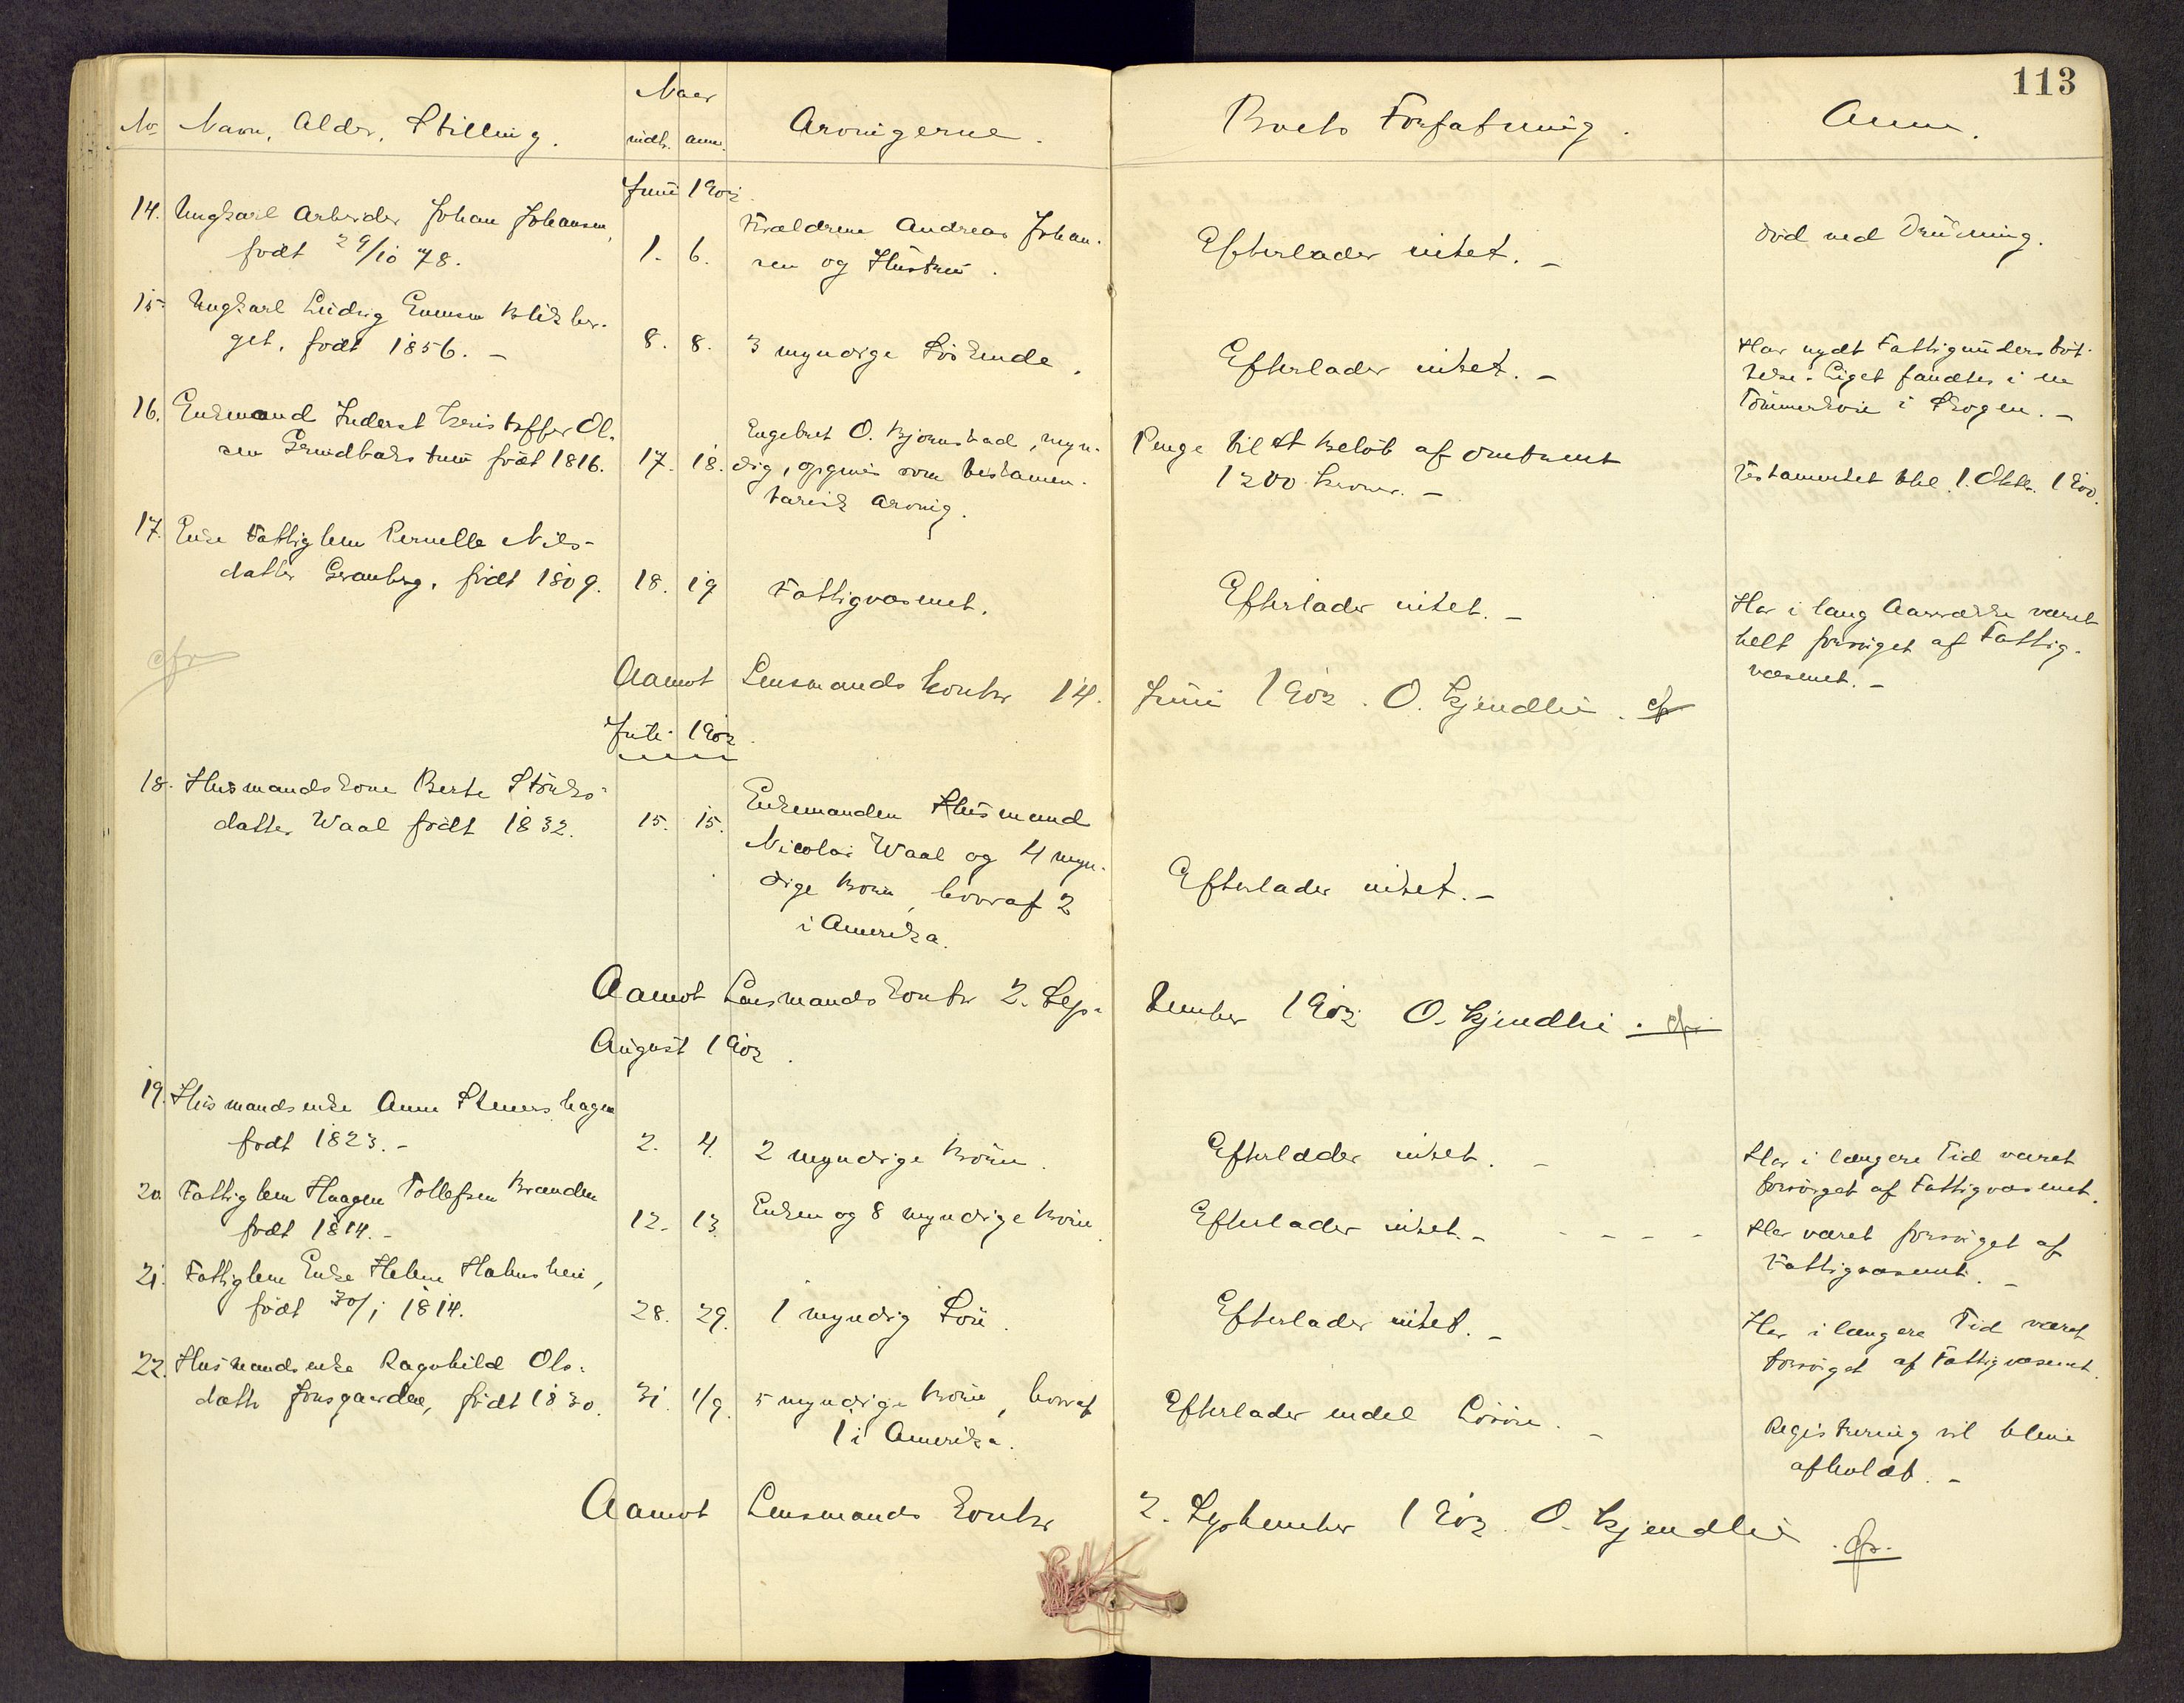 113
No Navn, Alder, Stilling.
Naar
indtr. anm.
Arvingerne.
Boets Forfatning.
Anm.
Juni 1902.
14. Ungkarl Arbeider Johan Johansen,
født 29/10 78.
1. 6.
Forældrene Andreas Johan-
sen og Hustru.
Efterlader intet. –
Død ved Drukning.
15. Ungkarl Ludvig Evensen Blikber-
get, født 1856. –
8. 8.
3 myndige Søskende.
Efterlader intet. –
Har nydt Fattigunderstøt-
telse. Liget fandtes i en
Tømmerkoie i Skogen. –
16. Enkemand Inderst Kristoffer Ol-
sen født 1816.
17. 18.
Engebret O. Bjørnstad, myn-
dig, opgives som testamen-
tarisk Arving.
Penge til et Beløb af omtrent
1200 Kroner. –
Testamentet 1. Oktbr. 1900.
17. Enke Fattiglem Pernelle Nils-
datter Granberg, født 1809.
18. 19
Fattigvæsenet.
Efterlader intet. –
Har i lang Aarrække været
helt forsørget af Fattig-
væsenet. –
cfr
Aamot Lensmandskontor 14. Juni 1902. O. Kjendlie. cfr
Juli 1902.
18. Husmandskone Berte Størks-
datter Waal født 1832.
15. 15.
Enkemanden Husmand
Nicolai Waal og 4 myn-
dige Børn, hvoraf 2
i Amerika.
Efterlader intet. –
Aamot Lensmandskontor 2. Sep-
tember 1902 O. Kjendlie. cfr.
August 1902.
19. Husmandsenke Anne Stenershagen
født 1823. –
2. 4.
2 myndige Børn.
Efterlader intet. –
Har i længere Tid været
forsørget af Fattigvæsenet.
20. Fattiglem Haagen Tollefsen Branden
født 1814. –
12. 13.
Enken og 8 myndige Børn.
Efterlader intet. – – – – –
Har været forsørget af
Fattigvæsenet. –
21. Fattiglem Enke Helene,
født 30/1 1814.
28. 29.
1 myndig Søn.
Efterlader intet. –
Har i længere Tid været
forsørget af Fattigvæsenet.
22. Husmandsenke Ragnhild Ols-
datter, født 1830.
31. 1/9.
5 myndige Børn, hvoraf
1 i Amerika.
Efterlader endel Løsøre. –
Registrering vil blive
afholdt. –
Aamot Lensmandskontor 2. September 1902. O. Kjendlie
cfr.